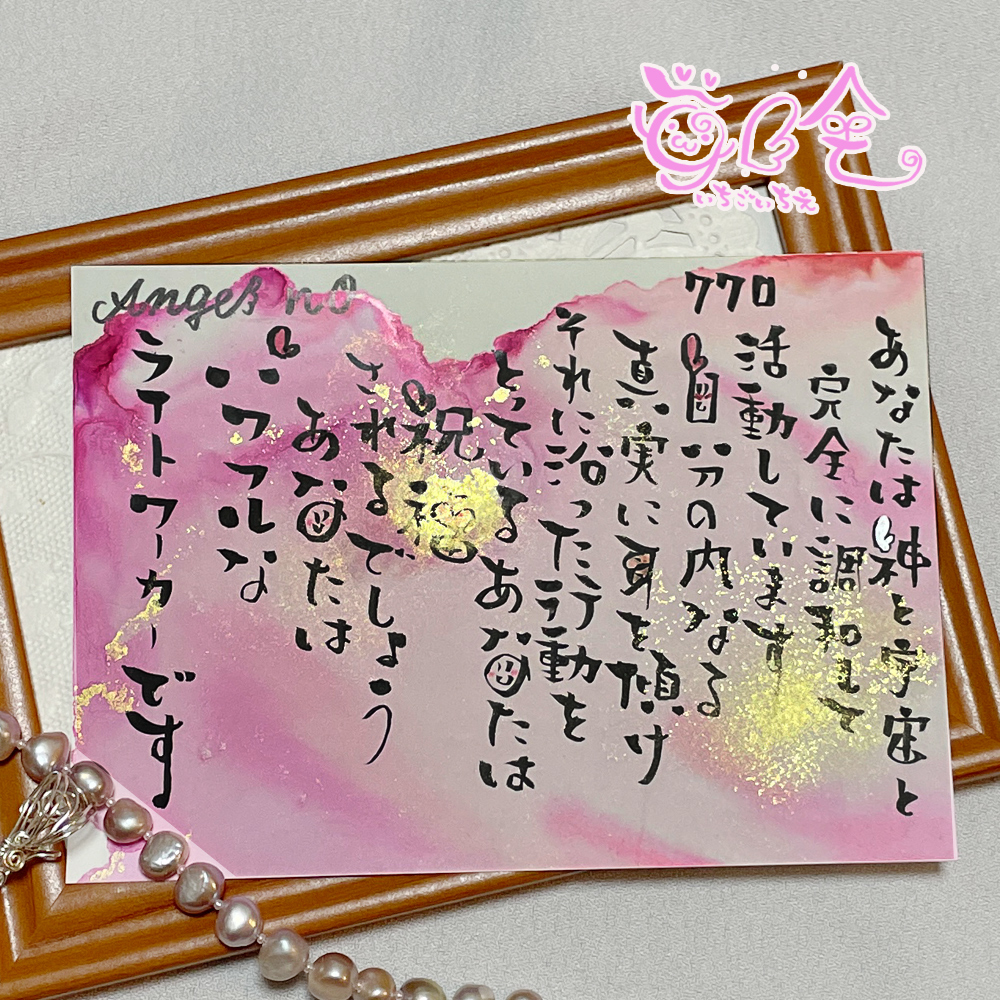 Angel no
770
あなたは神と宇宙と
完全に調和して
活動しています
自分の内なる
真実に耳を傾け
それに沿った行動を
とっているあなたは
祝福
されるでしょう
あなたは
パワフルな
ライトワーカーです
いちごいちえ